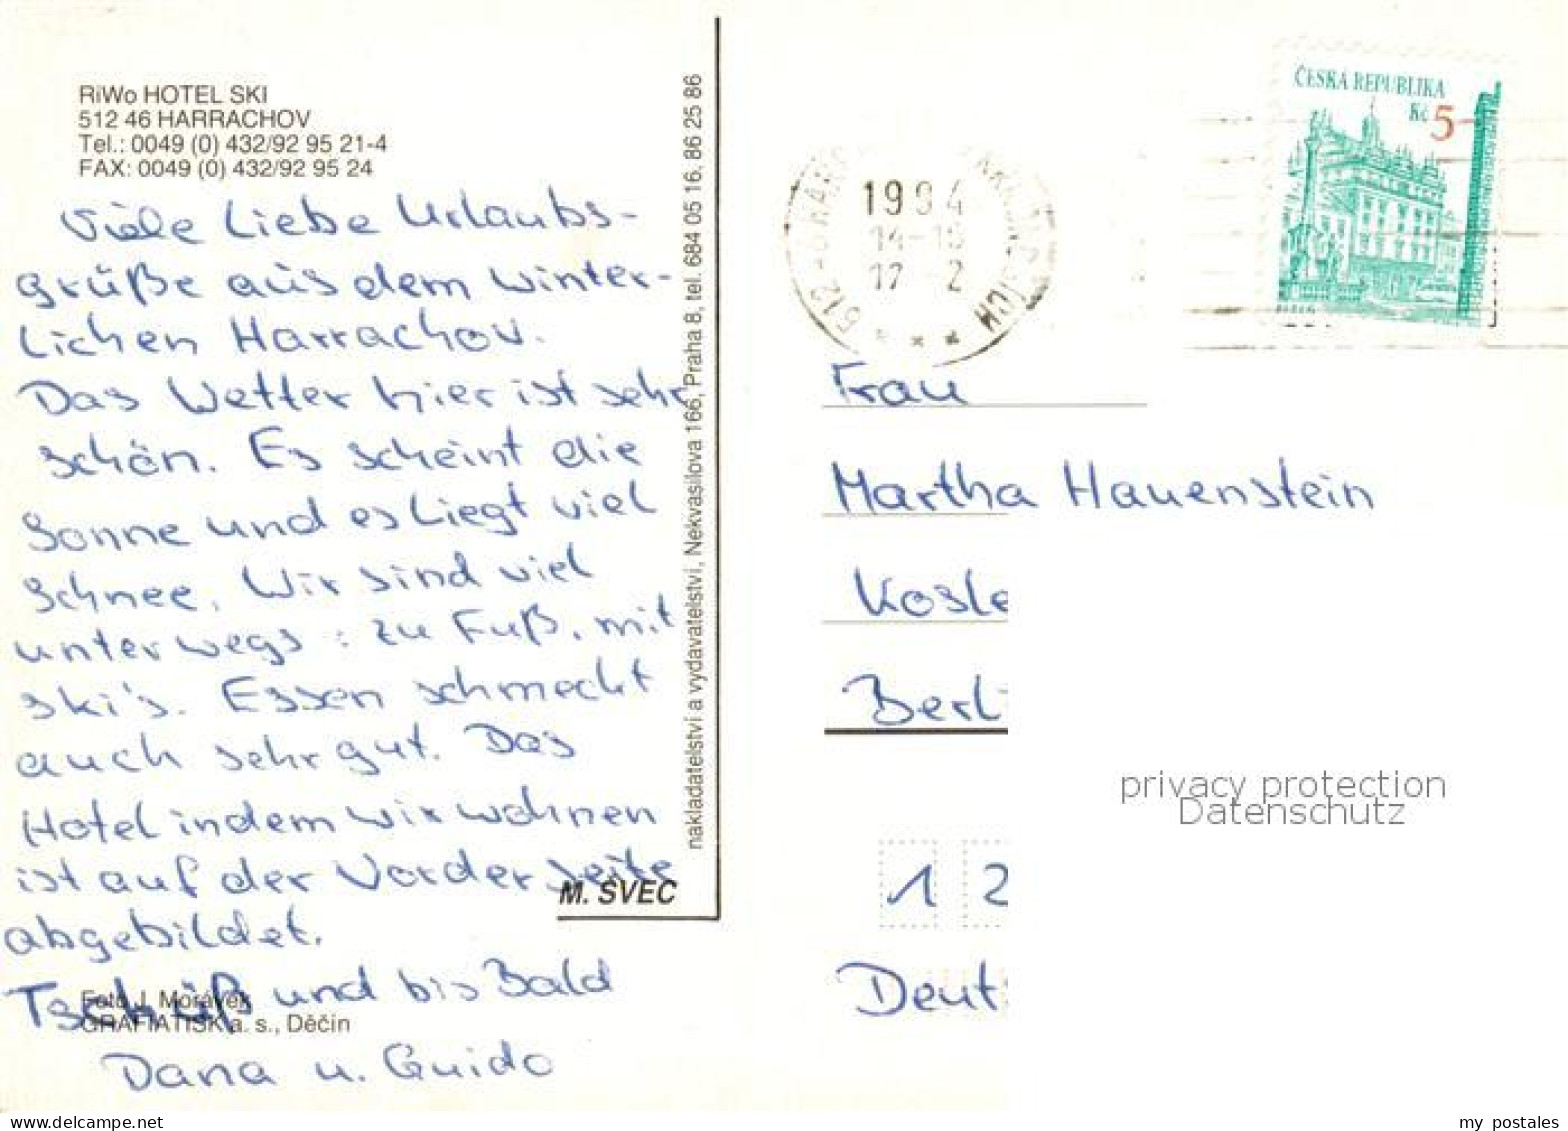 RiWo HOTEL SKI
512 46 HARRACHOV
Tel.: 0049 (0) 432/92 95 21-4
FAX: 0049 (0) 432/92 95 24
Viele Liebe Urlaubs-
grüße aus dem winter-
lichen Harrachov.
Das Wetter hier ist sehr
schön. Es scheint die
Sonne und es liegt viel
Schnee. Wir sind viel
unterwegs: zu Fuß, mit
Ski's. Essen schmeckt
auch sehr gut. Das
Hotel indem wir wohnen
ist auf der Vorderseite
abgebildet.
Tschüß und bis Bald
Dana u. Guido
M. ŠVEC
Foto J. Morávek
GRAFIATISK a. s., Děčín
nakladatelství a vydavatelství, Nekvasilova 166, Praha 8, tel. 684 05 16, 86 25 86
1994
14-18
17 2
512
ČESKÁ REPUBLIKA
Kč 5
Frau
Martha Hauenstein
Kosle
Berli
1 2
Deut
privacy protection
Datenschutz
my postales